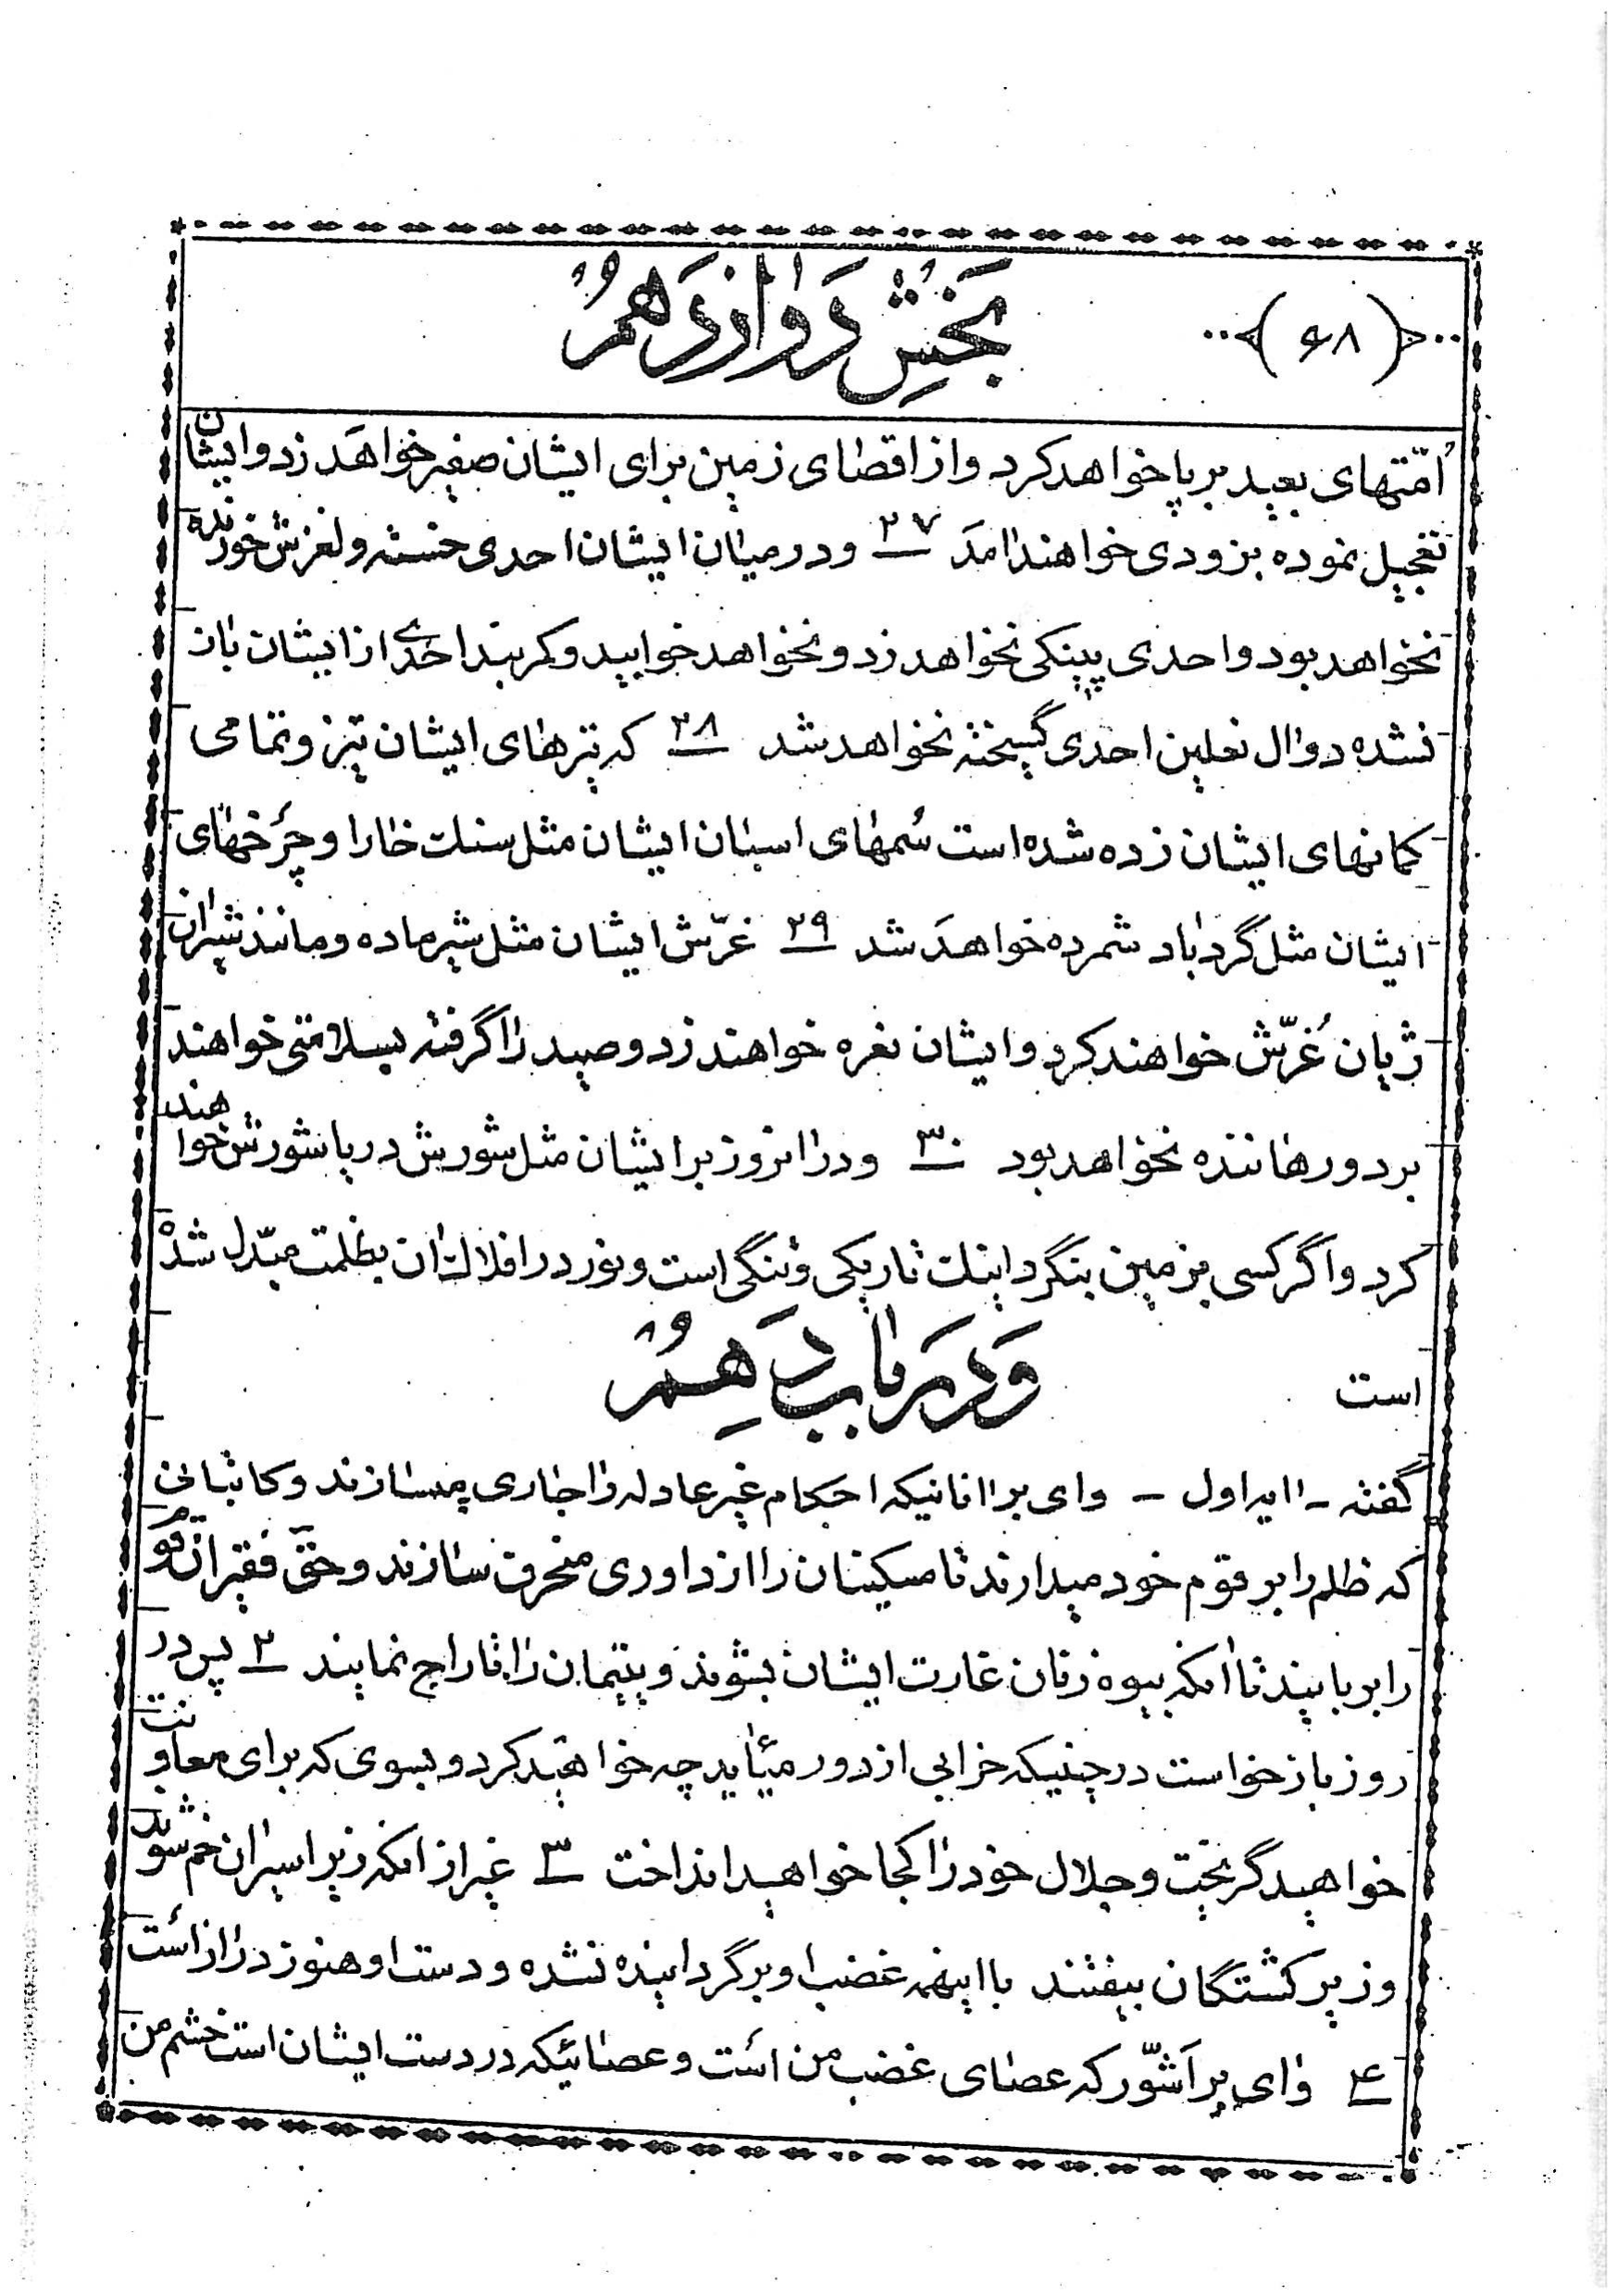 بخش دوازدهم
۶۸
امّتهای بعید برپا خواهد کرد و از اقصای زمین برای ایشان صفیر خواهد زد و ایشان
تعجیل نموده بزودی خواهند امد ۲۷ و در میان ایشان احدی خسته و لغزش خورنده
نخواهد بود و احدی پینکی نخواهد زد و نخواهد خوابید و کمربند احدی از ایشان باز
نشده دوال نعلین احدی گسیخته نخواهد شد ۲۸ که تیرهای ایشان تیز و تمامی
کمانهای ایشان زده شده است سُمهای اسبان ایشان مثل سنك خارا و چرخهای
ایشان مثل گردباد شمرده خواهد شد ۲۹ غرّش ایشان مثل شیر ماده و مانند شیران
ژیان غُرّش خواهند کرد و ایشان نعره خواهند زد و صید را گرفته بسلامتی خواهند
برد و رهاننده نخواهد بود ۳۰ و در انروز بر ایشان مثل شورش دریا شورش خواهند
کرد و اگر کسی بزمین بنگرد اینك تاریکی و تنگی است و نور در افلاك ان بظلمت مبدّل شده
است
و در باب دهم
گفته ـ ا ایه اول ـ وای بر انانیکه احکام غیر عادله را جاری میسازند و کاتبانی
که ظلم را بر قوم خود میدارند تا مسکینان را از داوری منحرف سازند و حقّ فقیران قوم
را بربایند تا انکه بیوه زنان غارت ایشان بشوند و یتیمان را تاراج نمایند ۲ پس در
روز بازخواست در حینیکه خرابی از دور میاید چه خواهید کرد و بسوی که برای معاونت
خواهید گریخت و جلال خود را کجا خواهید انداخت ۳ غیر از انکه زیر اسیران خم شوند
و زیر کشتگان بیفتند با اینهمه غضب او برگردانیده نشده و دست او هنوز دراز است
۴ وای بر اشّور که عصای غضب من است و عصائیکه در دست ایشان است خشم من